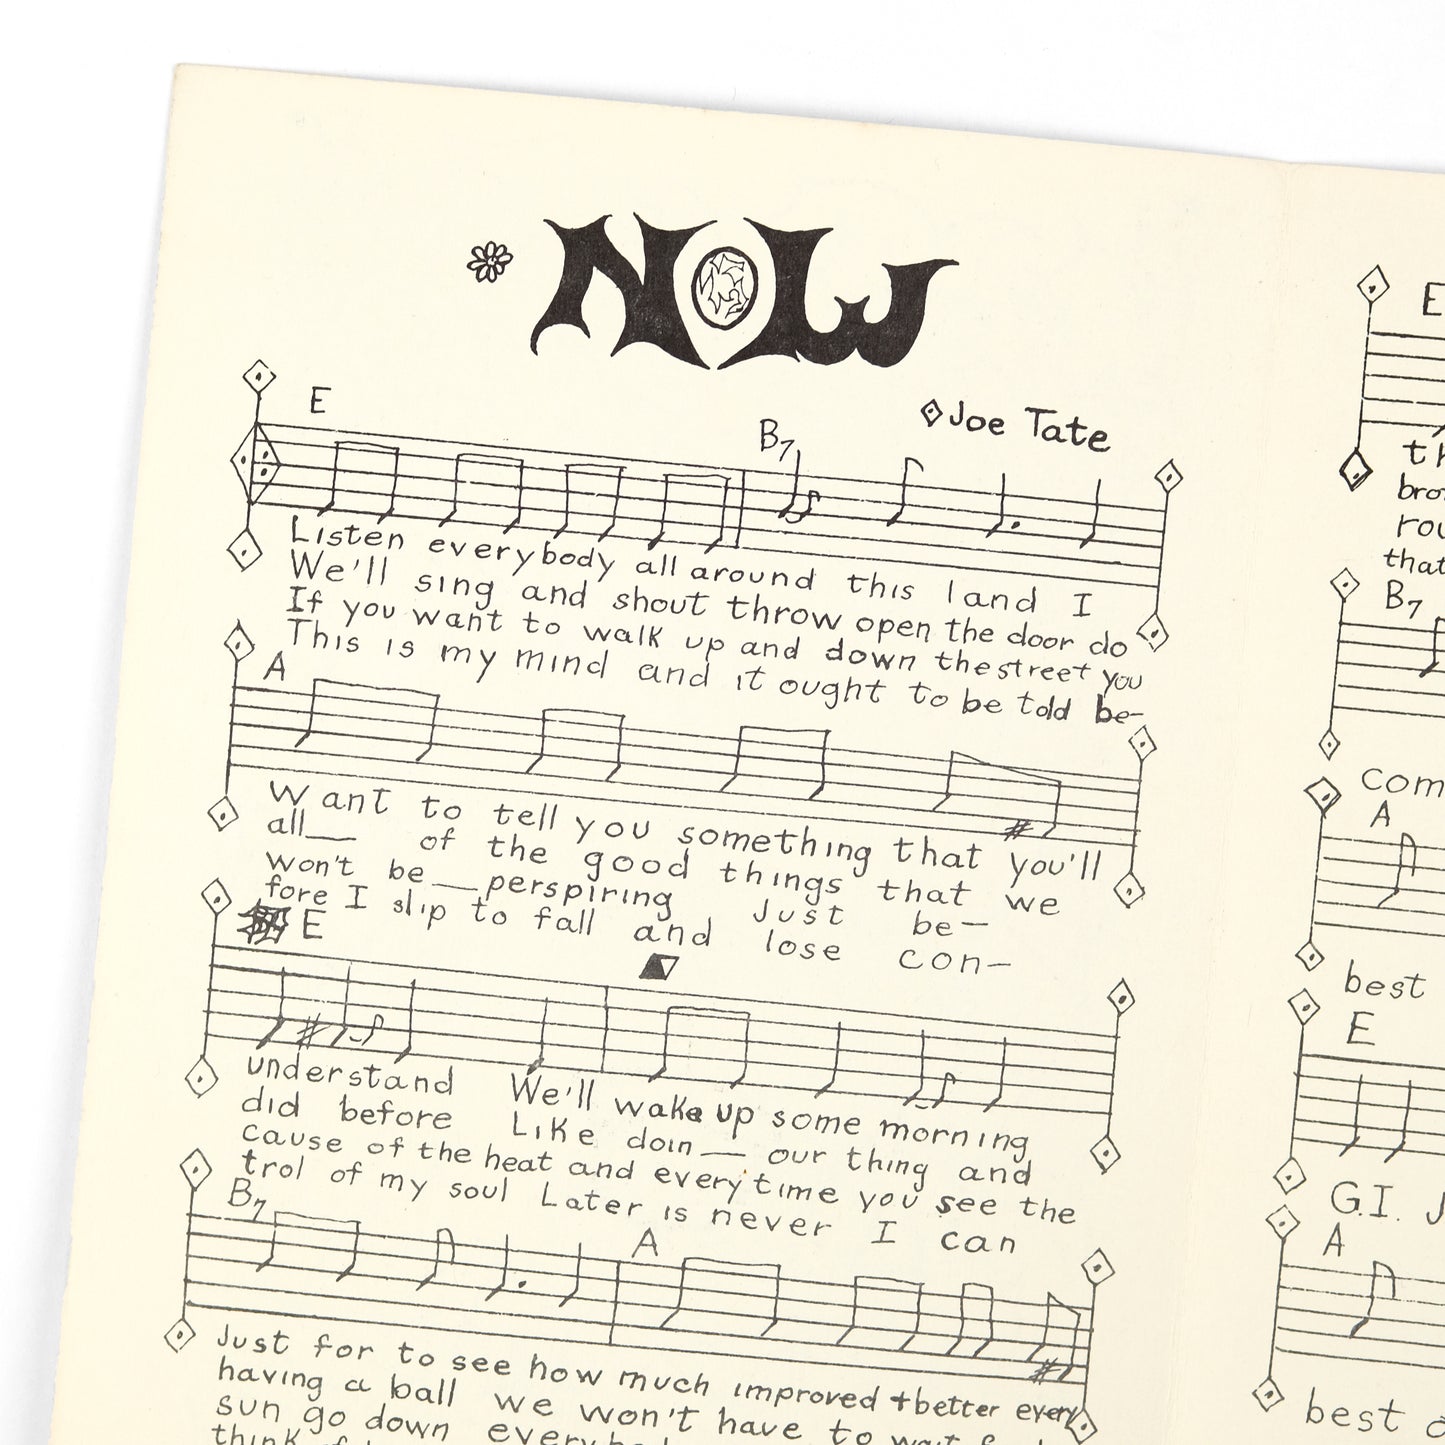 NOW
Joe Tate
E
B7
Listen everybody all around this land I
We'll sing and shout throw open the door do
If you want to walk up and down the street you
This is my mind and it ought to be told be-
A
Want to tell you something that you'll
all__ of the good things that we
won't be__perspiring Just be-
fore I slip to fall and lose con-
E
understand We'll wake up some morning
did before Like doin__ our thing and
cause of the heat and everytime you see the
trol of my soul Later is never I can
B7
A
Just for to see how much improved +better every
having a ball we won't have to wait
sun go down
think
E
bro
rou
that
B7
com
A
best
E
G.I. J
A
best